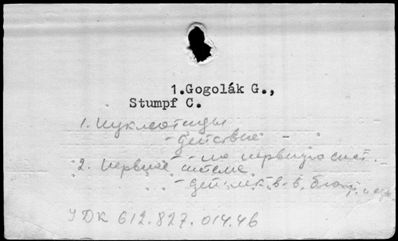 1.Gogolák G.,
Stumpf C.
1. Нуклеотиды
- действие -
2. Нервная система -
- на нервную сист.
УДК 612.827.014.46